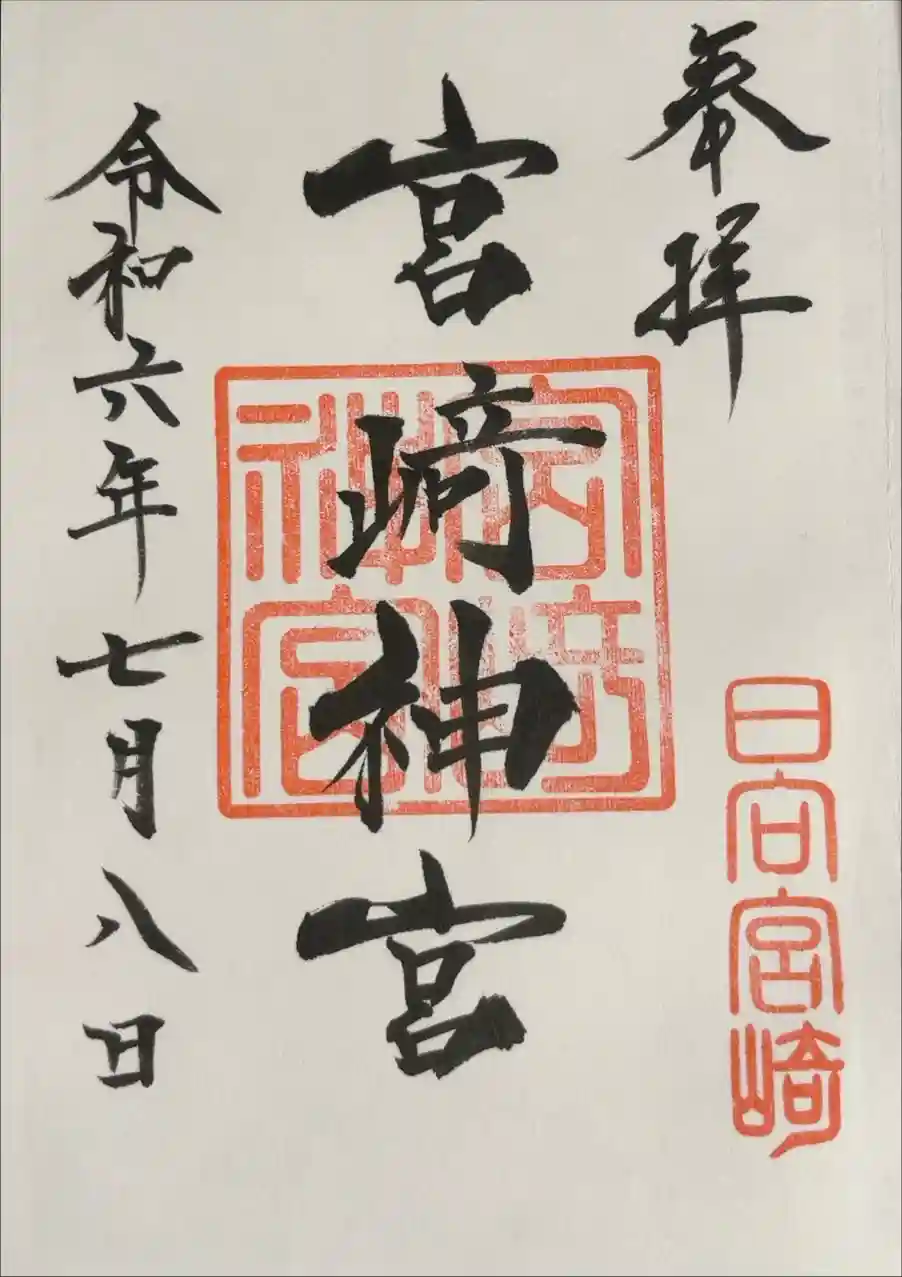 奉拝
日向宮崎
宮﨑神宮
宮崎神宮
令和六年七月八日